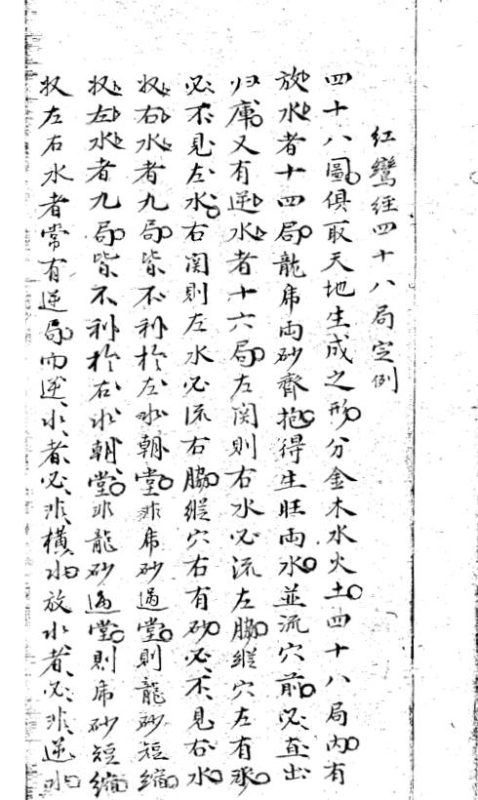 红鸞经四十八局定例
四十八圖俱取天地生成之形分金木水火土四十八局内有
放水者十四局龍虎両砂齊抱得生旺両水並流穴前必直出
归庫又有逆水者十六局左関則右水必流左脇縦穴左有砂
必不見左水右関則左水必流右脇縦穴右有砂必不見右水
収右水者九局皆不利於左水朝堂非虎砂過堂則龍砂短縮
収左水者九局皆不利於右水朝堂非龍砂過堂則虎砂短縮
収左右水者常有逆局而逆水者必非横水放水者必非逆水